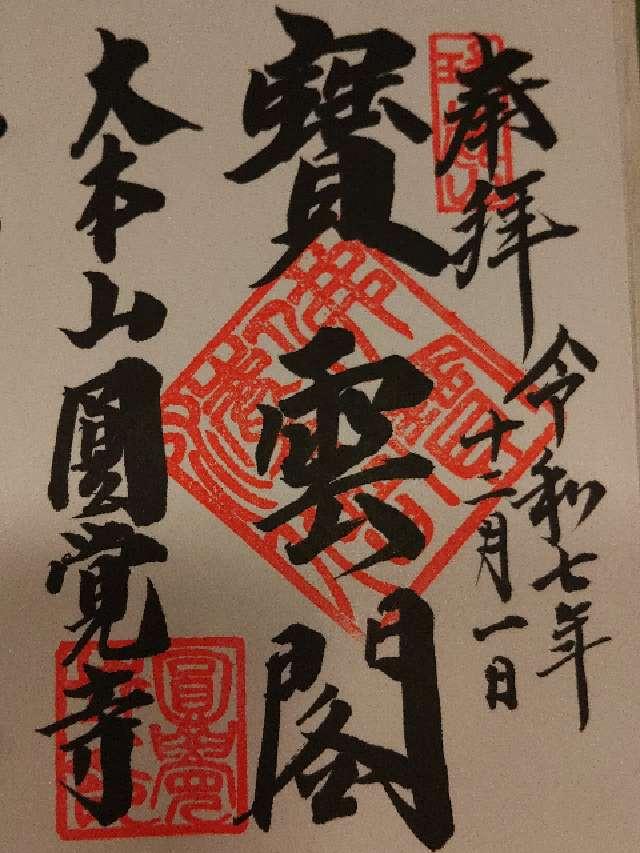 奉拝
令和七年
十二月一日
寳雲閣
大本山圓覚寺